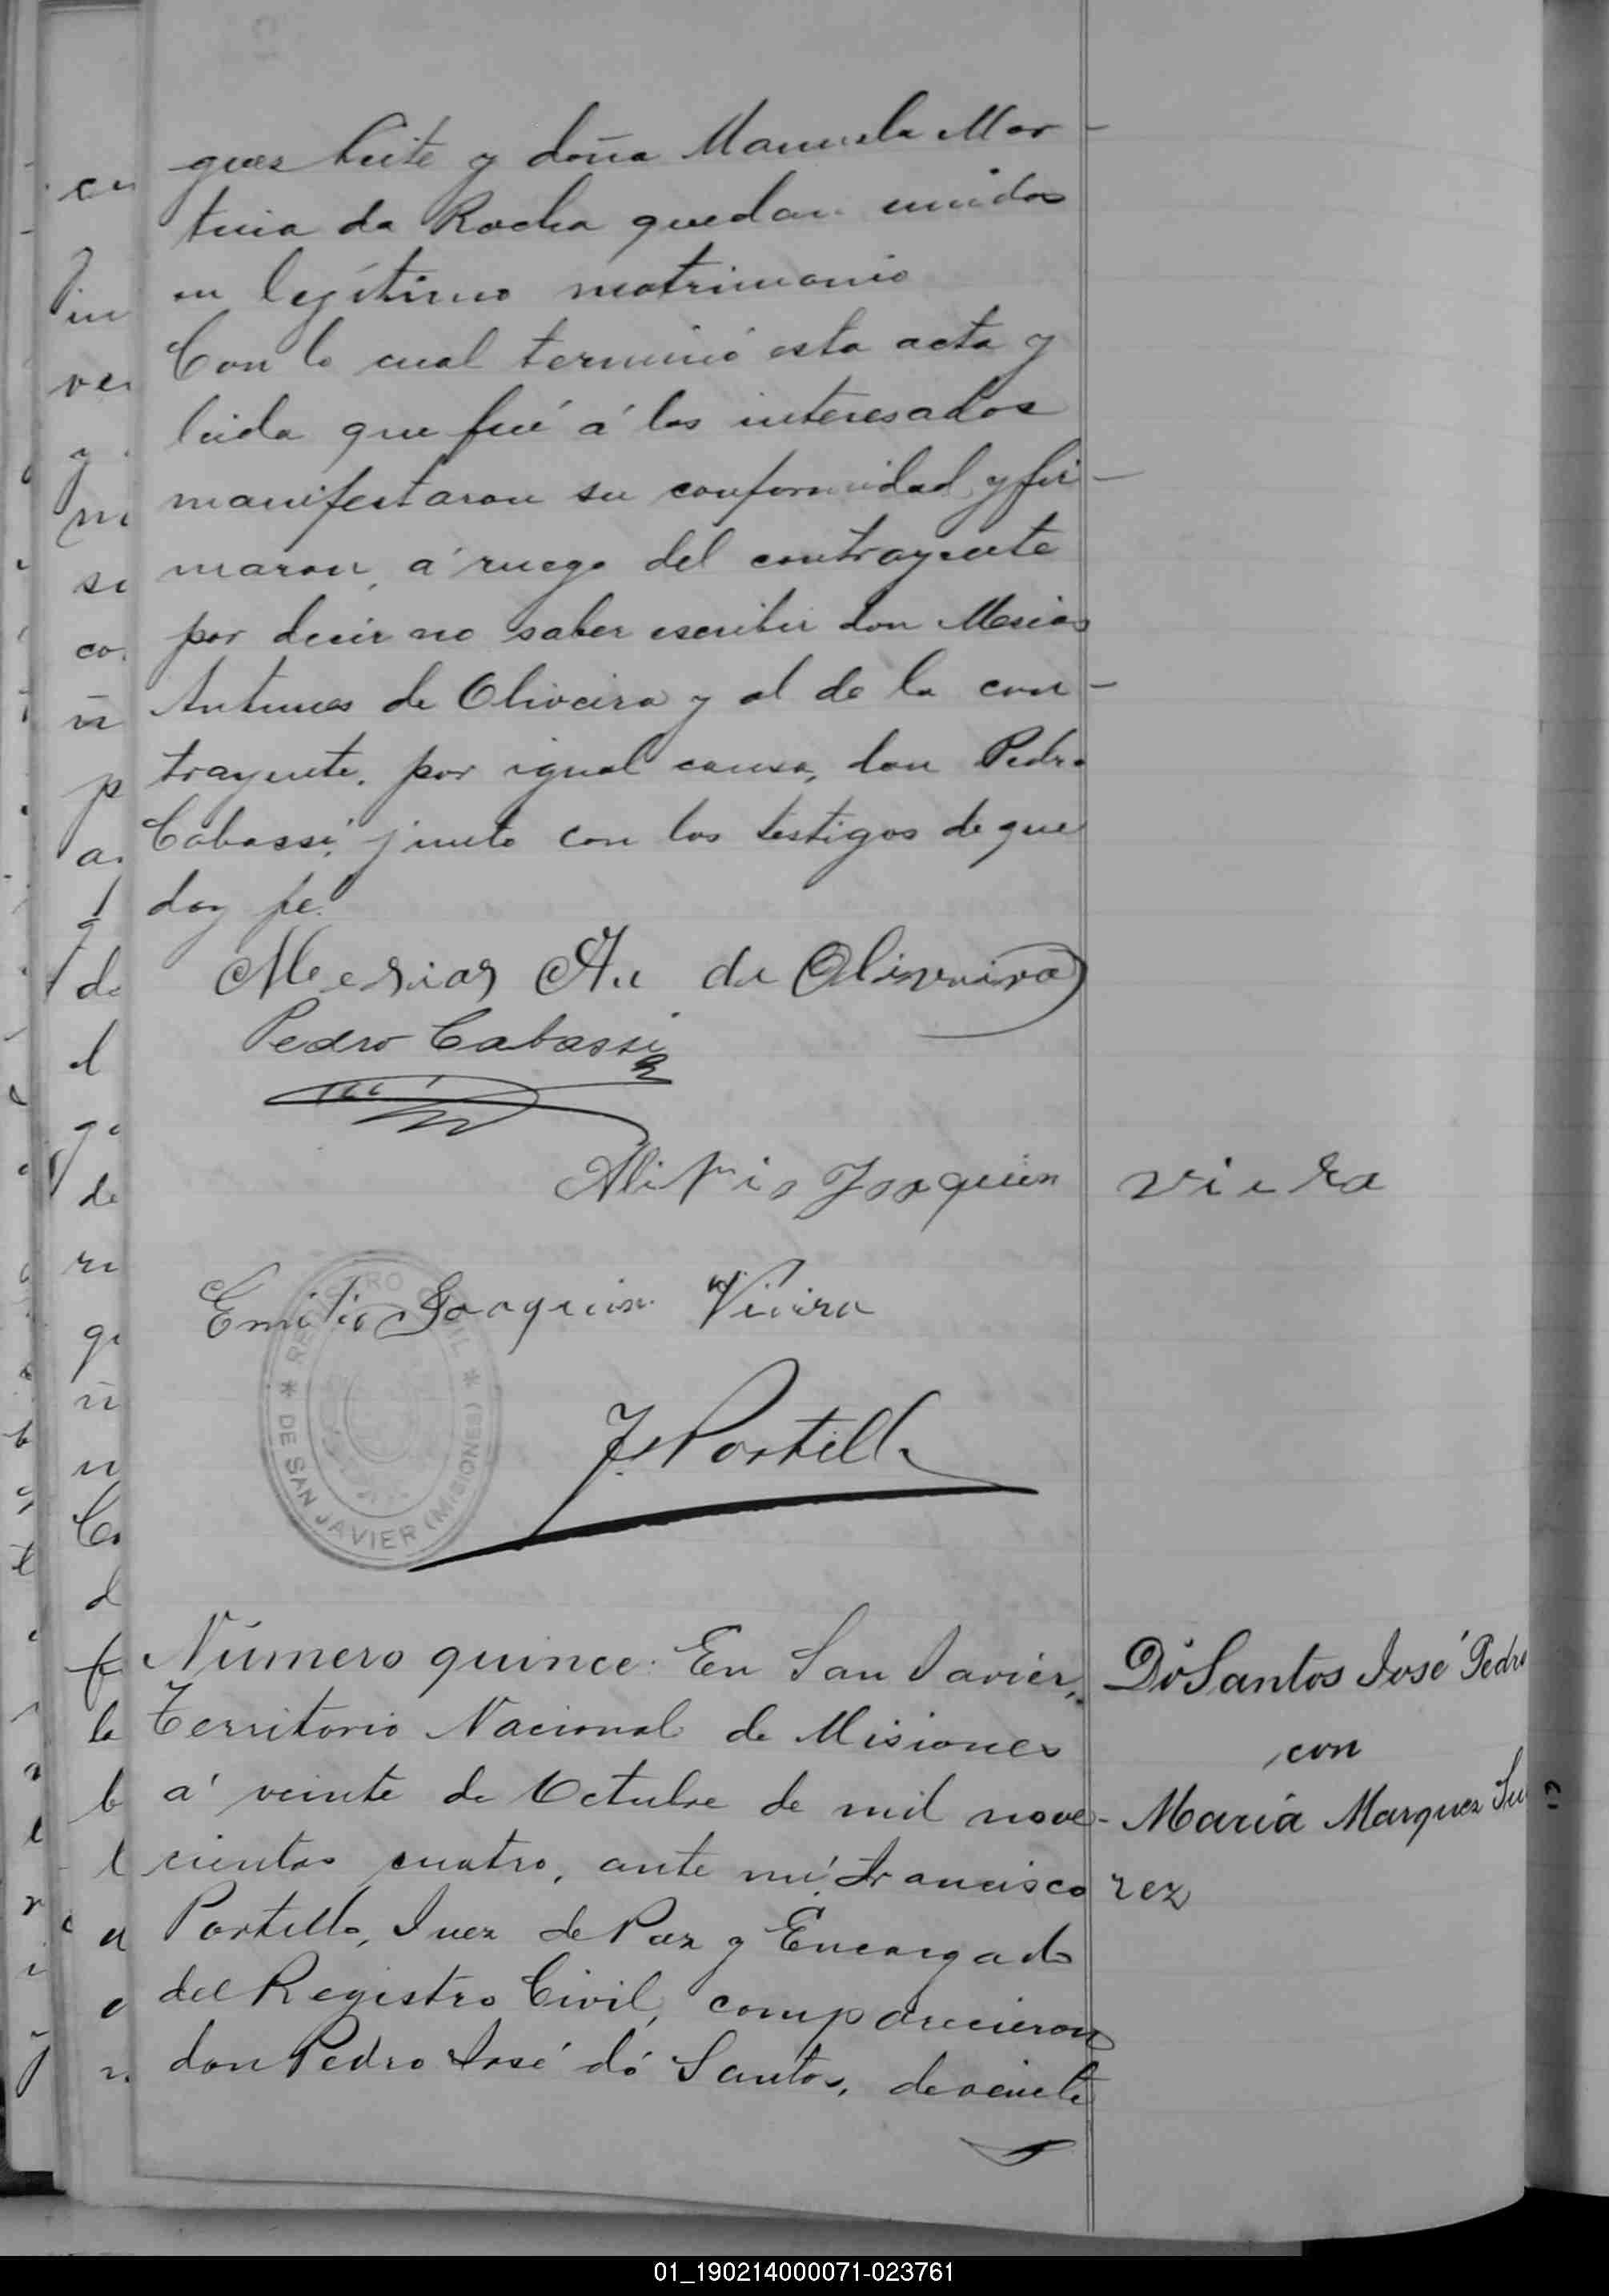 guez Leite y doña Manuela Mar-
tinia da Rocha quedan unidos
en legítimo matrimonio
Con lo cual terminó esta acta y
leida que fué á los interesados
manifestaron su conformidad y fir-
maron, á ruego del contrayente
por decir no saber escribir don Mesias
Antunes de Oliveira y al de la con-
trayente, por igual causa, don Pedro
Cabassi, junto con los testigos de que
doy fe.
Mesias An de Oliveira
Pedro Cabassi
Alipio Joaquin viera
Emilio Joaquin Vieira
REGISTRO CIVIL
* DE SAN JAVIER (MISIONES) *
F. Portillo
Número quince. En San Javier,
Territorio Nacional de Misiones
á veinte de Octubre de mil nove-
cientos cuatro, ante mí, Francisco
Portillo, Juez de Paz y Encargado
del Registro Civil, comparecieron
don Pedro José dó Santos, de veinte
Dó Santos José Pedro
con
María Marquez Sua
rez
01_190214000071-023761